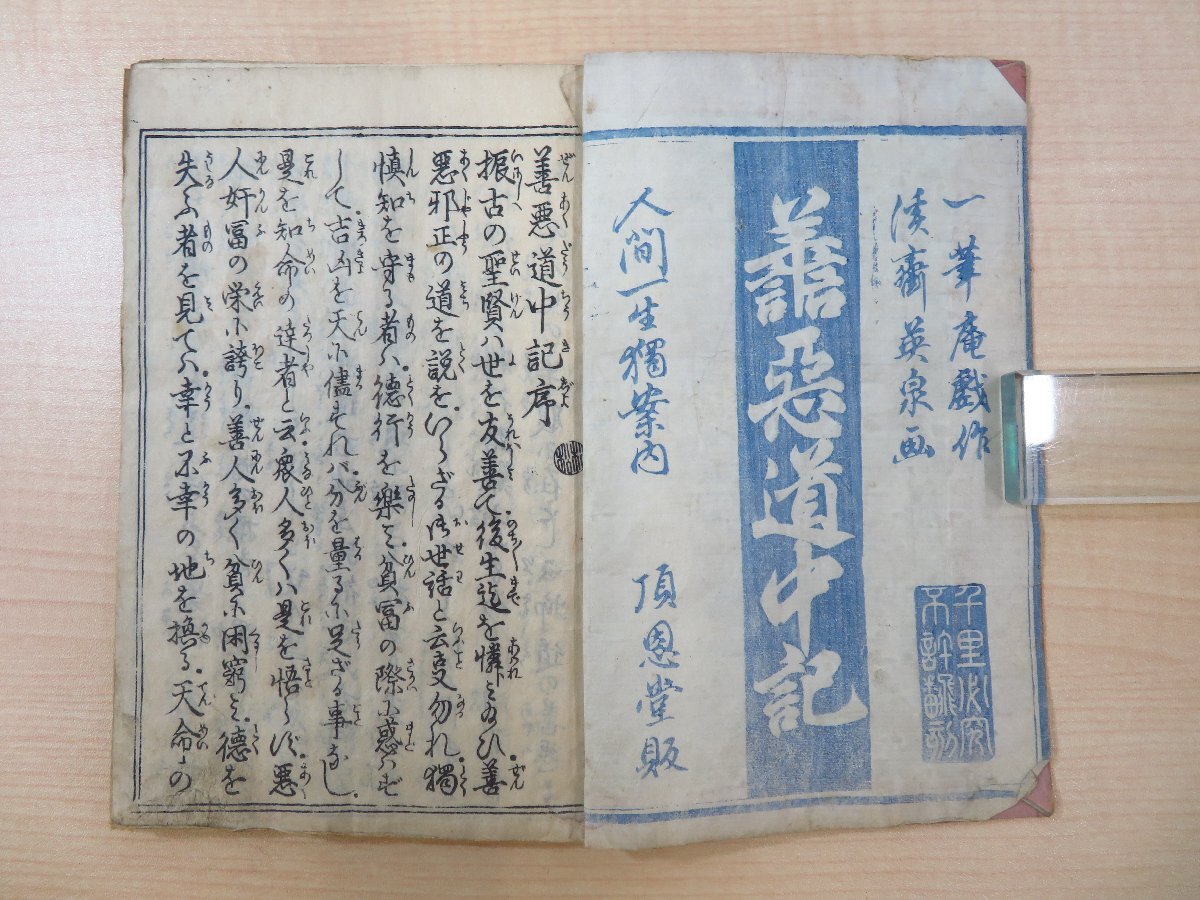 一筆庵戯作
渓齋英泉画
千里必究
不許翻刻
譱惡道中記
人間一生獨案内
頂恩堂販
善惡道中記序
振古の聖賢ハ世を友善て後生迄を憐ミ給ひ。善
惡邪正の道を説を。いらざる御世話と云事勿れ。獨
慎知を守る者ハ。徳行を樂ミ。貧冨の際に惑ハず
して。吉凶を天に儘すれバ。分を量るに足ざる事なし。
是を知命の達者と云。衆人多くハ是を悟らず。惡
人奸冨の栄に誇り。善人多く貧に困窮ミ。徳を
失ふ者を見てハ。幸と不幸の地を換る。天命の